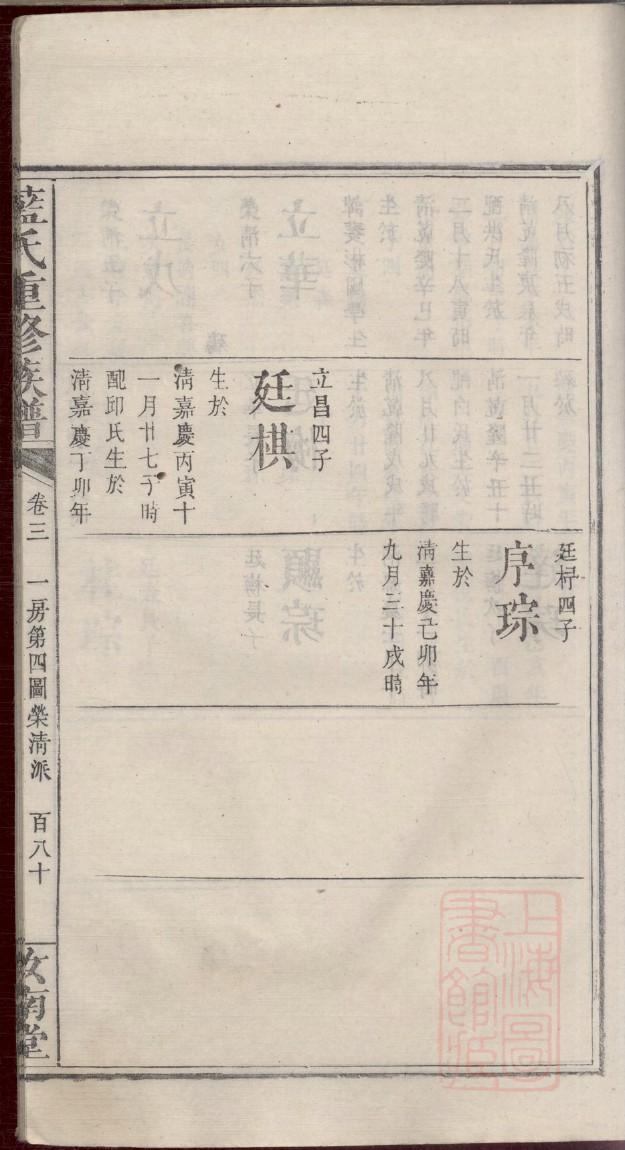 立昌四子
廷棋
生於
淸嘉慶丙寅十
一月廿七子時
配邱氏生於
淸嘉慶丁卯年
廷杍四子
序琮
生於
淸嘉慶己卯年
九月三十戌時
藍氏重修族譜
卷三
一房第四圖榮淸派
百八十
汝南堂
上海圖
書館藏